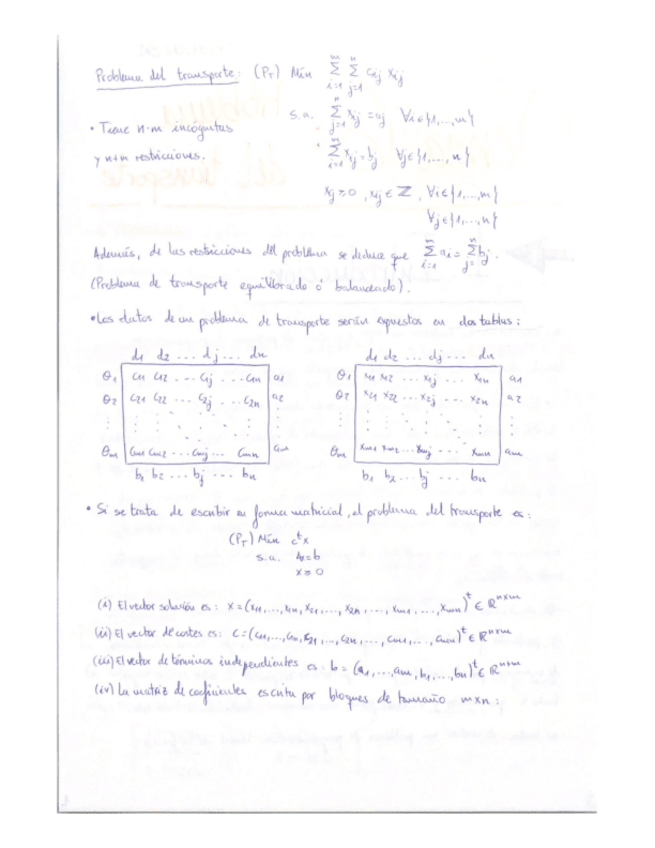 Problema del transporte: (P_T) Min Σ_{i=1}^{m} Σ_{j=1}^{n} c_ij x_ij
s.a. Σ_{j=1}^{n} x_ij = a_i ∀i∈{1,...,m}
• Tiene n·m incógnitas
y n+m restricciones.
Σ_{i=1}^{m} x_ij = b_j ∀j∈{1,...,n}
x_ij ≥ 0, x_ij ∈ ℤ, ∀i∈{1,...,m}
∀j∈{1,...,n}
Además, de las restricciones del problema se deduce que Σ_{i=1}^{m} a_i = Σ_{j=1}^{n} b_j.
(Problema de transporte equilibrado o balanceado).
• Los datos de un problema de transporte serán expuestos en dos tablas:
d1 d2 ... dj ... dn
O1 c11 c12 ... c1j ... c1n a1
O2 c21 c22 ... c2j ... c2n a2
Om cm1 cm2 ... cmj ... cmn am
b1 b2 ... bj ... bn
d1 d2 ... dj ... dn
O1 x11 x12 ... x1j ... x1n a1
O2 x21 x22 ... x2j ... x2n a2
Om xm1 xm2 ... xmj ... xmn am
b1 b2 ... bj ... bn
• Si se trata de escribir en forma matricial, el problema del transporte es:
(P_T) Min c^t x
s.a. Ax=b
x≥0
(i) El vector solución es: x=(x11,...,x1n,x21,...,x2n,...,xm1,...,xmn)^t ∈ ℝ^{n×m}
(ii) El vector de costes es: c=(c11,...,c1n,c21,...,c2n,...,cm1,...,cmn)^t ∈ ℝ^{n×m}
(iii) El vector de términos independientes es: b=(a1,...,am,b1,...,bn)^t ∈ ℝ^{n+m}
(iv) La matriz de coeficientes escrita por bloques de tamaño m×n: